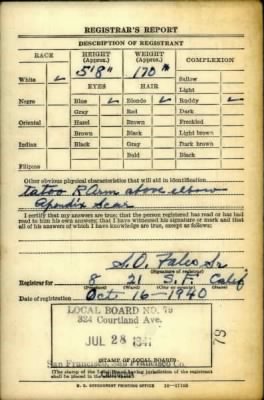 REGISTRAR'S REPORT
DESCRIPTION OF REGISTRANT
RACE HEIGHT (Approx.) WEIGHT (Approx.) COMPLEXION
5'8" 170
White ✓ EYES HAIR Sallow
Light
Negro Blue ✓ Blonde ✓ Ruddy ✓
Gray Red Dark
Oriental Hazel Brown Freckled
Brown Black Light brown
Indian Black Gray Dark brown
Bald Black
Filipino
Other obvious physical characteristics that will aid in identification
tatoo R Arm above elbow
Apendix Scar
I certify that my answers are true; that the person registered has read or has had
read to him his own answers; that I have witnessed his signature or mark and that
all of his answers of which I have knowledge are true, except as follows:
(Signature of registrar)
Registrar for 8 21 S.F. Calif
(Precinct) (Ward) (City or county) (State)
Date of registration Oct-16-1940
LOCAL BOARD NO. 79
324 Courtland Ave.
JUL 28 1941
79
San Francisco, San Francisco, Cal.
(STAMP OF LOCAL BOARD)
(The stamp of the Local Board having jurisdiction of the registrant
shall be placed in the above space)
U. S. GOVERNMENT PRINTING OFFICE